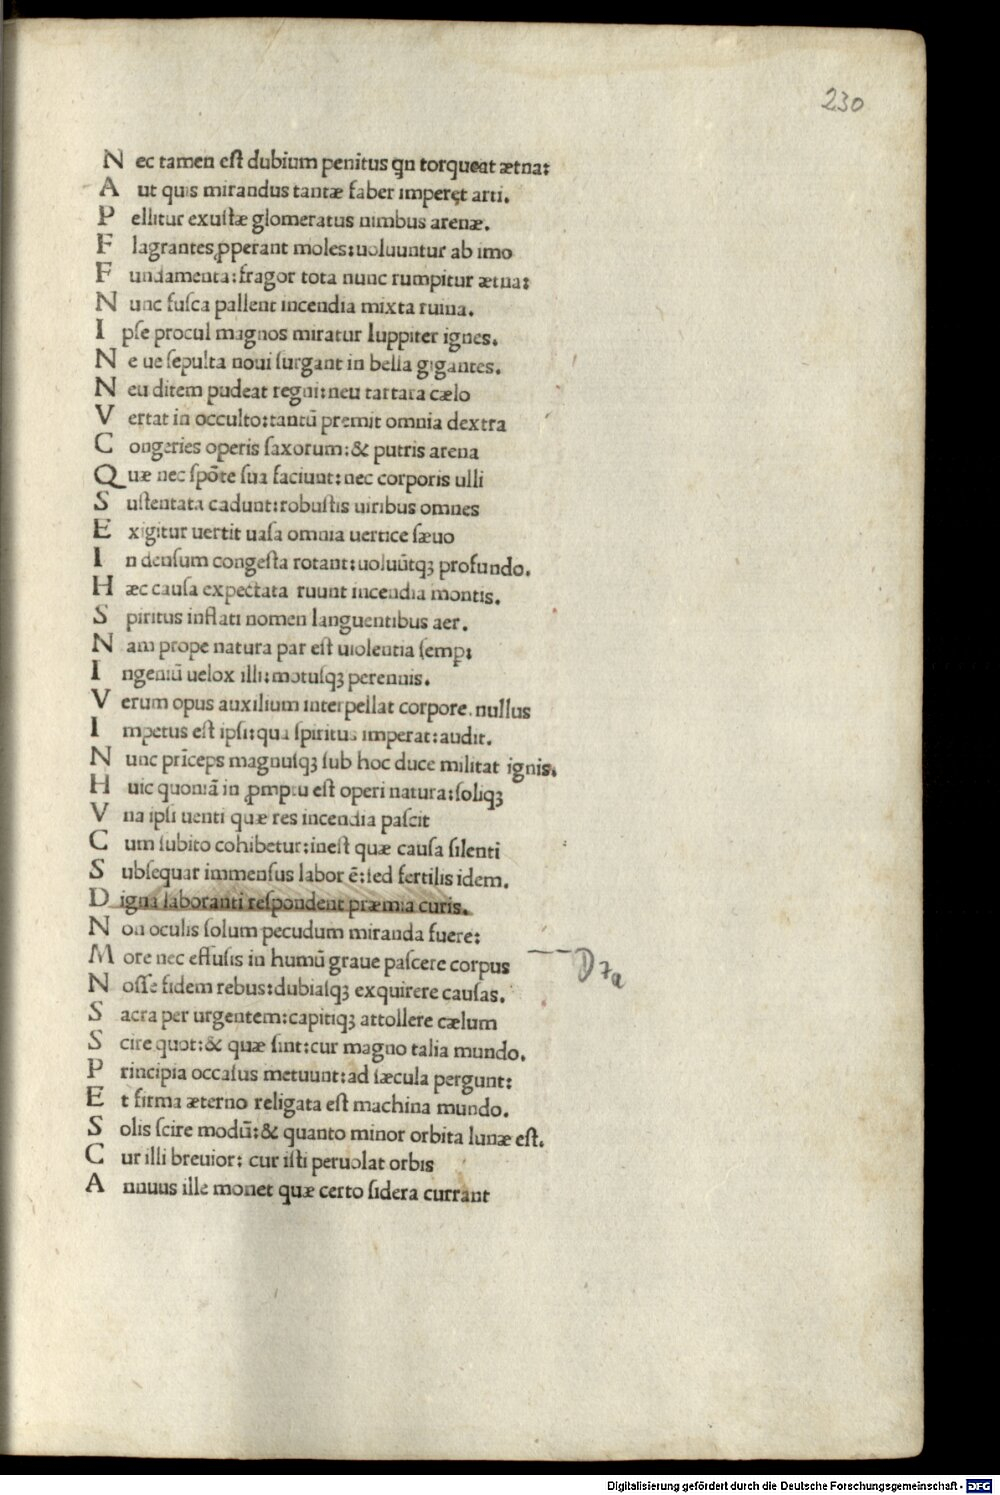 230
N ec tamen eſt dubium penitus qn torqueat ætna:
A ut quis mirandus tantæ faber imperet arti.
P ellitur exuſtæ glomeratus nimbus arenæ.
F lagrantes ꝓperant moles:uoluuntur ab imo
F undamenta:fragor tota nunc rumpitur ætna:
N unc fuſca pallent incendia mixta ruina.
I pſe procul magnos miratur Iuppiter ignes.
N e ue ſepulta noui ſurgant in bella gigantes.
N eu ditem pudeat regni:neu tartara cælo
V ertat in occulto:tantū premit omnia dextra
C ongeries operis ſaxorum:& putris arena
Q uæ nec ſpōte ſua faciunt:nec corporis ulli
S uſtentata cadunt:robuſtis uiribus omnes
E xigitur uertit uaſa omnia uertice ſæuo
I n denſum congeſta rotant:uoluūtqꝫ profundo.
H æc cauſa expectata ruunt incendia montis.
S piritus inflati nomen languentibus aer.
N am prope natura par eſt uiolentia ſemp:
I ngeniū uelox illi:motuſqꝫ perennis.
V erum opus auxilium interpellat corpore.nullus
I mpetus eſt ipſi:qua ſpiritus imperat:audit.
N unc prīceps magnuſqꝫ ſub hoc duce militat ignis.
H uic quoniā in ꝓmptu eſt operi natura:ſoliqꝫ
V na ipſi uenti quæ res incendia paſcit
C um ſubito cohibetur:ineſt quæ cauſa ſilenti
S ubſequar immenſus labor ē:ſed fertilis idem.
D igna laboranti reſpondent præmia curis.
N on oculis ſolum pecudum miranda fuere:
M ore nec effuſis in humū graue paſcere corpus
D 7a
N oſſe fidem rebus:dubiaſqꝫ exquirere cauſas.
S acra per urgentem:capitiqꝫ attollere cælum
S cire quot:& quæ ſint:cur magno talia mundo.
P rincipia occaſus metuunt:ad ſæcula pergunt:
E t firma æterno religata eſt machina mundo.
S olis ſcire modū:& quanto minor orbita lunæ eſt.
C ur illi breuior: cur iſti peruolat orbis
A nnuus ille monet quæ certo ſidera currant
Digitalisierung gefördert durch die Deutsche Forschungsgemeinschaft - DFG